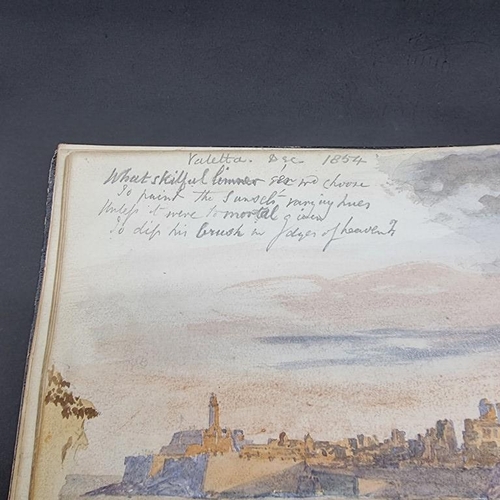 Valetta. Dec 1854
What skilful limner e'er wd choose
To paint the Sunset's varying hues
Unless it were to mortal given
To dip his brush in dyes of heaven